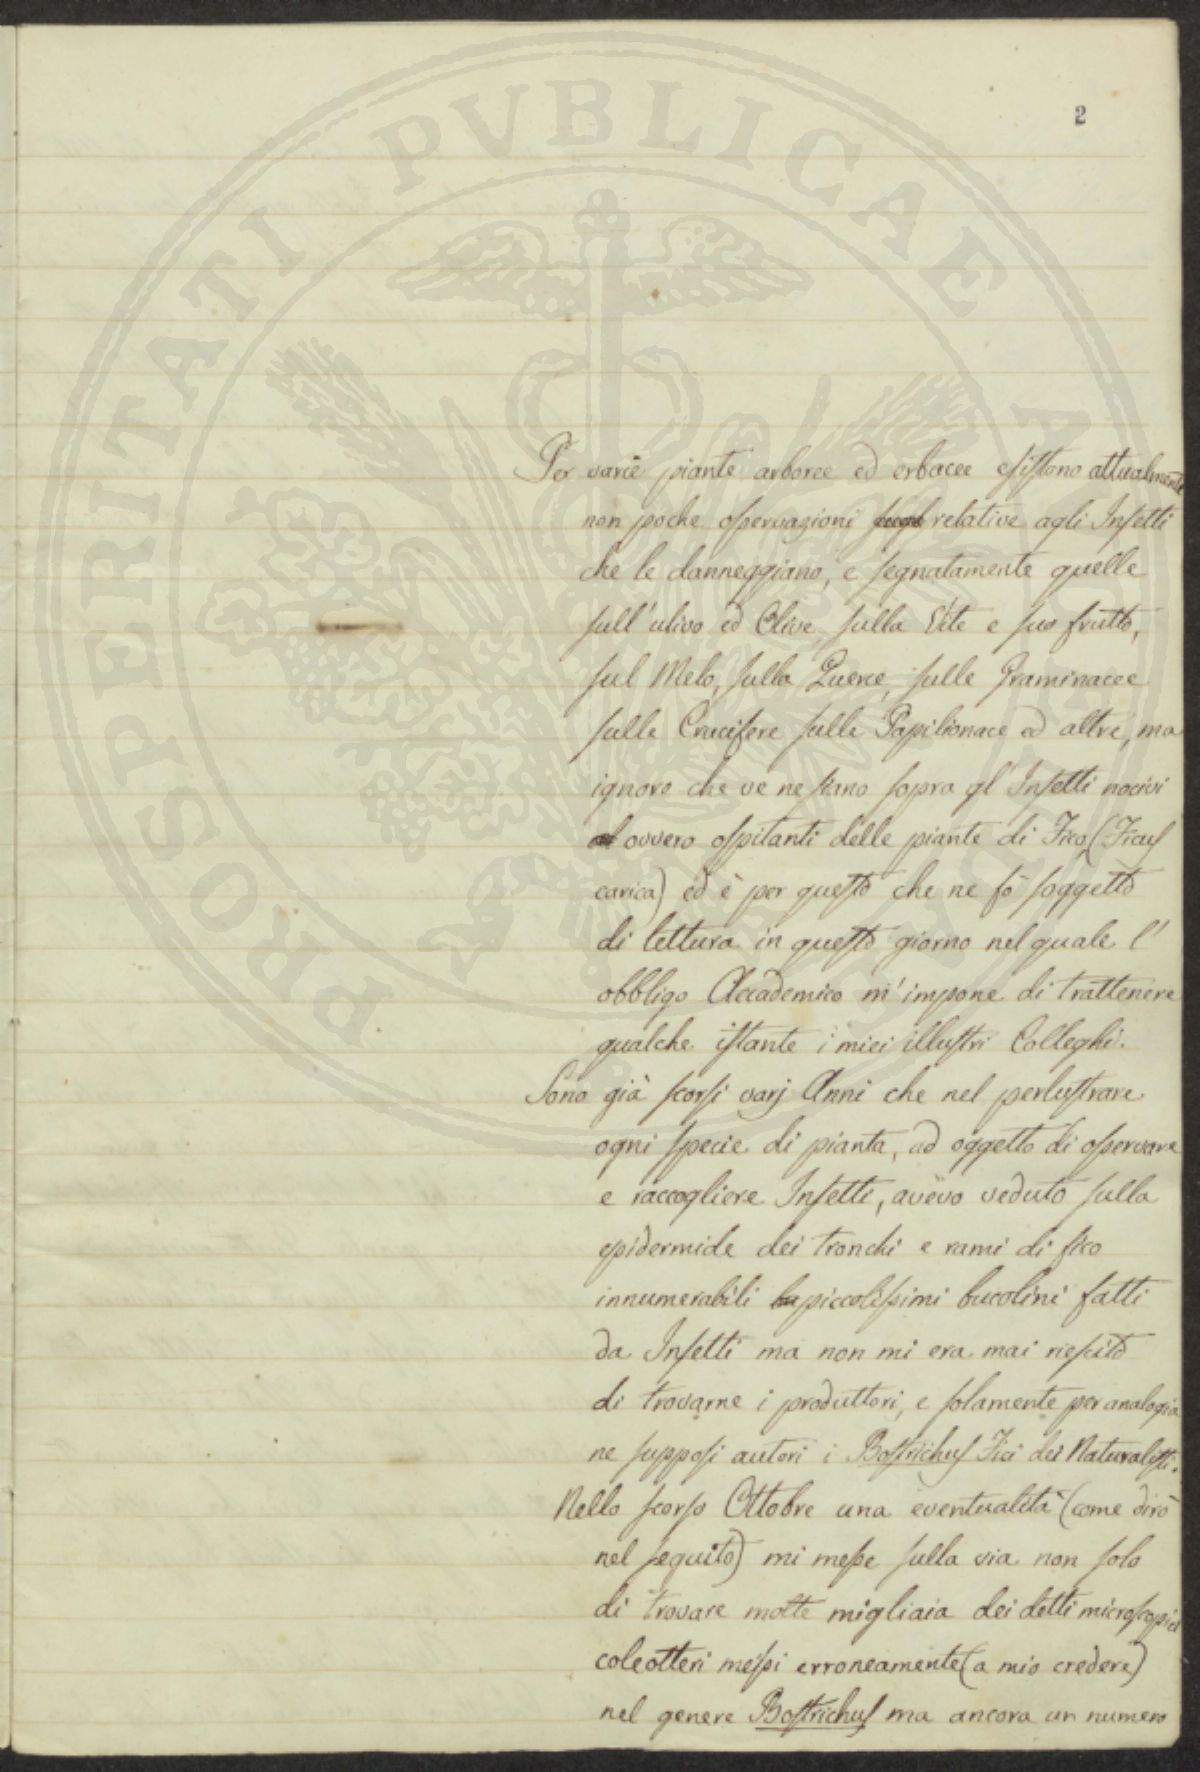 2
PROSPERITATI PVBLICAE
Per varie piante arboree ed erbacee esistono attualmente
non poche osservazioni sugl relative agli Insetti
che le danneggiano, e segnatamente quelle
sull'ulivo ed Olive, sulla Vite e suo frutto,
sul Melo, sulla Querce, sulle Graminacee
sulle Crucifere sulle Papilionace ed altre, ma
ignoro che ve ne siano sopra gl'Insetti nocivi
ovvero ospitanti delle piante di Fico (Ficus
carica) ed è per questo che ne fò soggetto
di lettura in questo giorno nel quale l'
obbligo Accademico m'impone di trattenere
qualche istante i miei illustri Colleghi.
Sono già scorsi varj Anni che nel perlustrare
ogni specie di pianta, ad oggetto di osservare
e raccogliere Insetti, avevo veduto sulla
epidermide dei tronchi e rami di fico
innumerabili bu piccolissimi bucolini fatti
da Insetti ma non mi era mai riescito
di trovarne i produttori, e solamente per analogia
ne supposi autori i Bostrichus Fici dei Naturalisti.
Nello scorso Ottobre una eventualità (come dirò
nel seguito) mi messe sulla via non solo
di trovare molte migliaia dei detti microscopici
coleotteri messi erroneamente (a mio credere)
nel genere Bostrichus ma ancora un numero